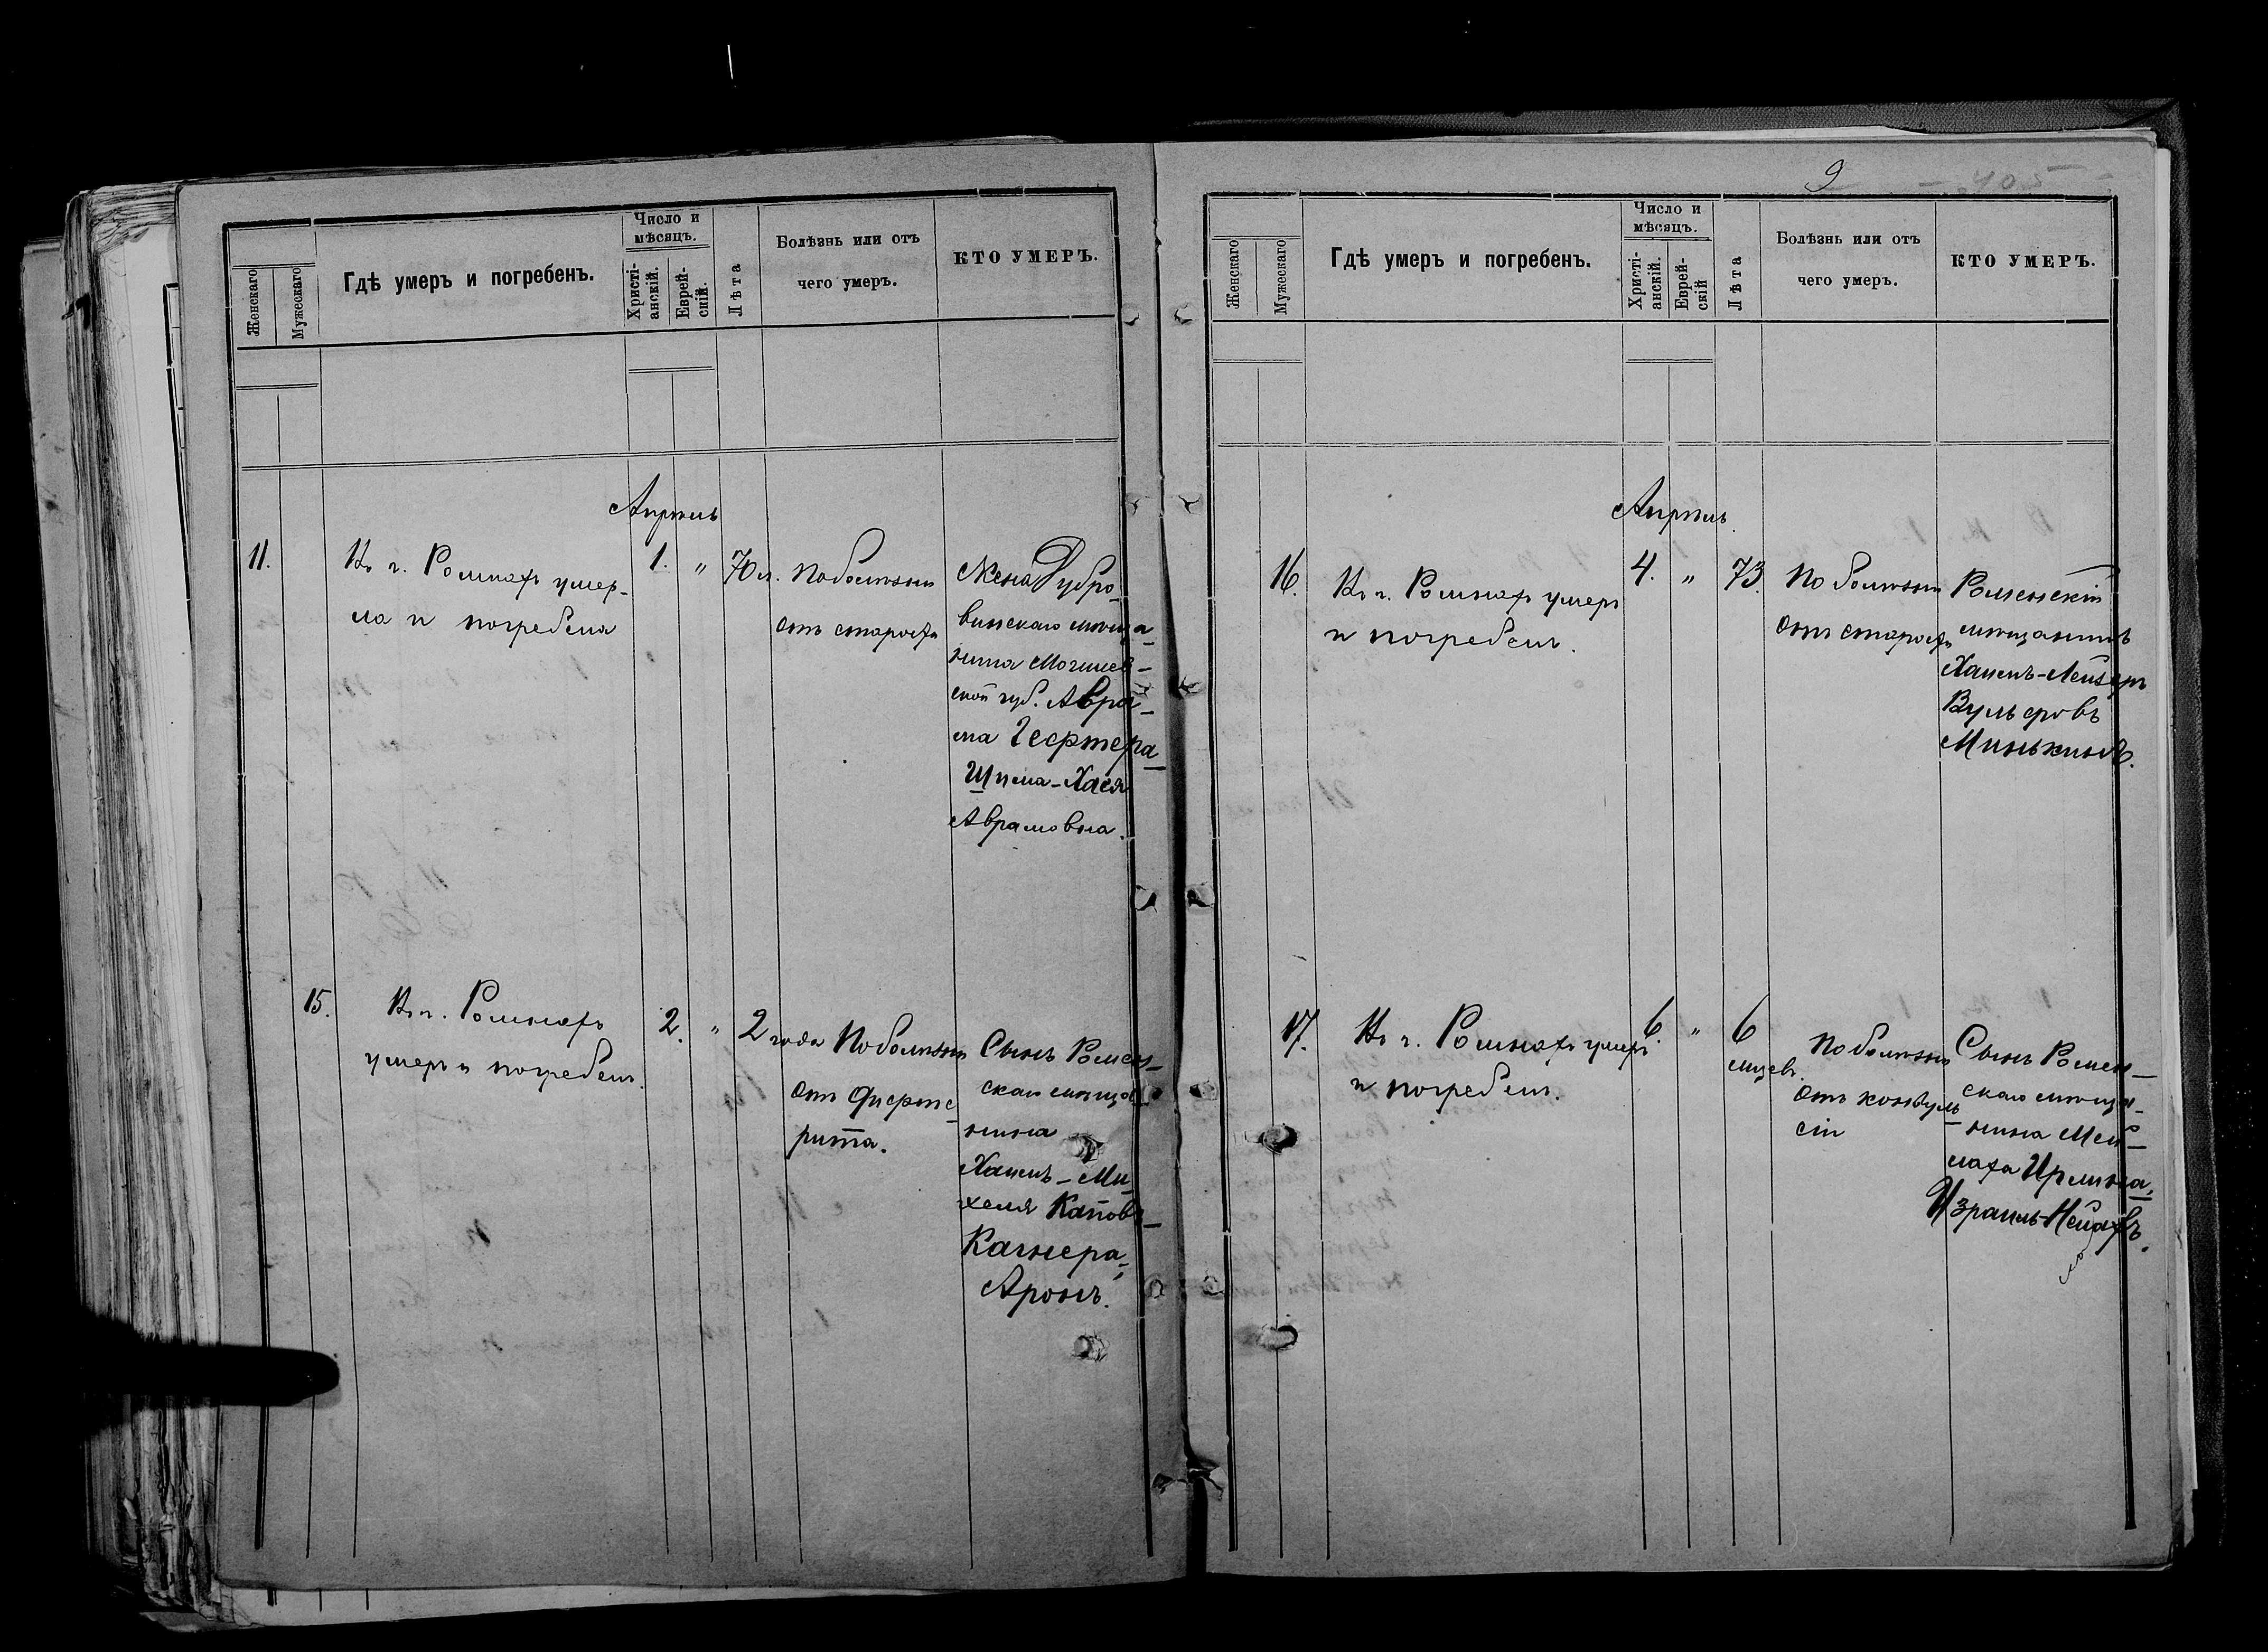 Женскаго
Мужескаго
Гдѣ умеръ и погребенъ.
Число и
мѣсяцъ.
Христі-
анскій.
Еврей-
скій.
Лѣта
Болѣзнь или отъ
чего умеръ.
КТО УМЕРЪ.
Апрѣль
11.
Въ г. Ромнахъ умер-
ла и погребена
1.
"
70 л.
По болѣзни
отъ старости
Жена Дубро-
винскаго мѣща-
нина Могилев-
ской губ. Авра-
ма Гефтера
Шима-Хася
Аврамовна.
15.
Въ г. Ромнахъ
умеръ и погребенъ.
2.
"
2 года
По болѣзни
отъ дифте-
рита.
Сынъ Ромен-
скаго мѣща-
нина
Хаимъ-Ми-
хеля
Кагнера,
Аронъ.
9
405
Женскаго
Мужескаго
Гдѣ умеръ и погребенъ.
Число и
мѣсяцъ.
Христі-
анскій.
Еврей-
скій
Лѣта
Болѣзнь или отъ
чего умеръ.
КТО УМЕРЪ.
Апрѣль.
16.
Въ г. Ромнахъ умеръ
и погребенъ.
4.
"
73.
По болѣзни
отъ старости
Роменскій
мѣщанинъ
Хаимъ-Лейзеръ
Вульфовъ
Минькинъ.
17.
Въ г. Ромнахъ умеръ
и погребенъ.
6.
"
6
мцевъ.
По болѣзни
отъ конвуль-
сіи
Сынъ Ромен-
скаго мѣща-
нина Мей-
лаха Ирлина,
Израиль-Нейахъ.